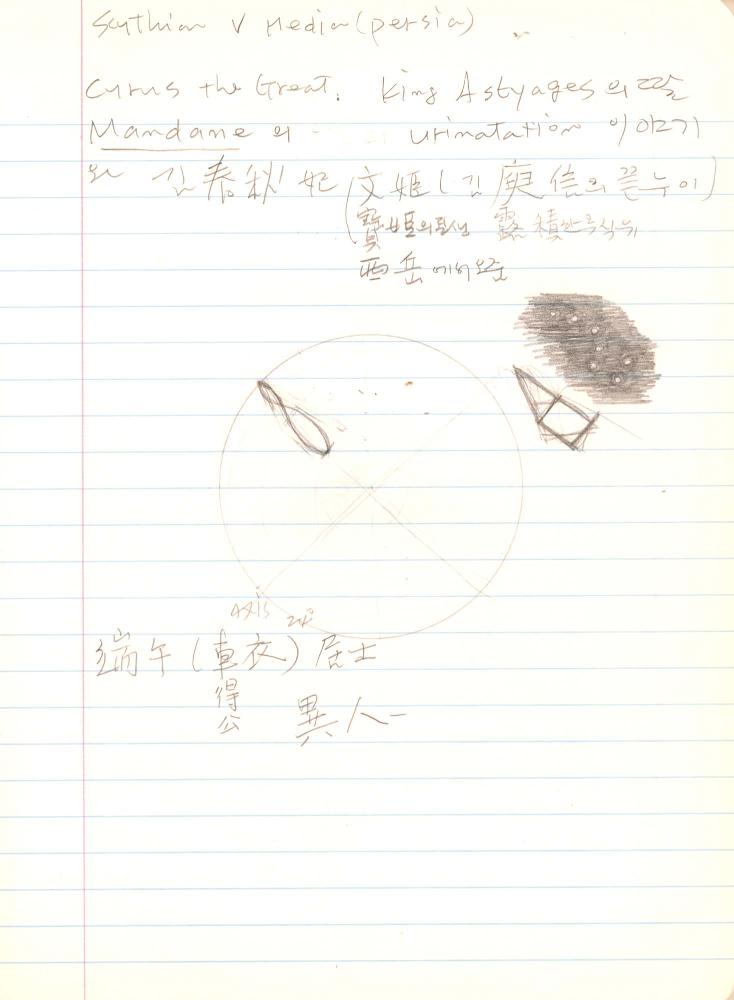 Scythian V Media (persia)
Cyrus the Great. King Astyages의 딸
Mandane의 urinatation 이야기
와 김春秋 妃 (文姬 (김庾信의 끝누이)
(寶姬의 露積
西岳에서 오줌
axis
端午 (車衣) 居士
得
公
異人一